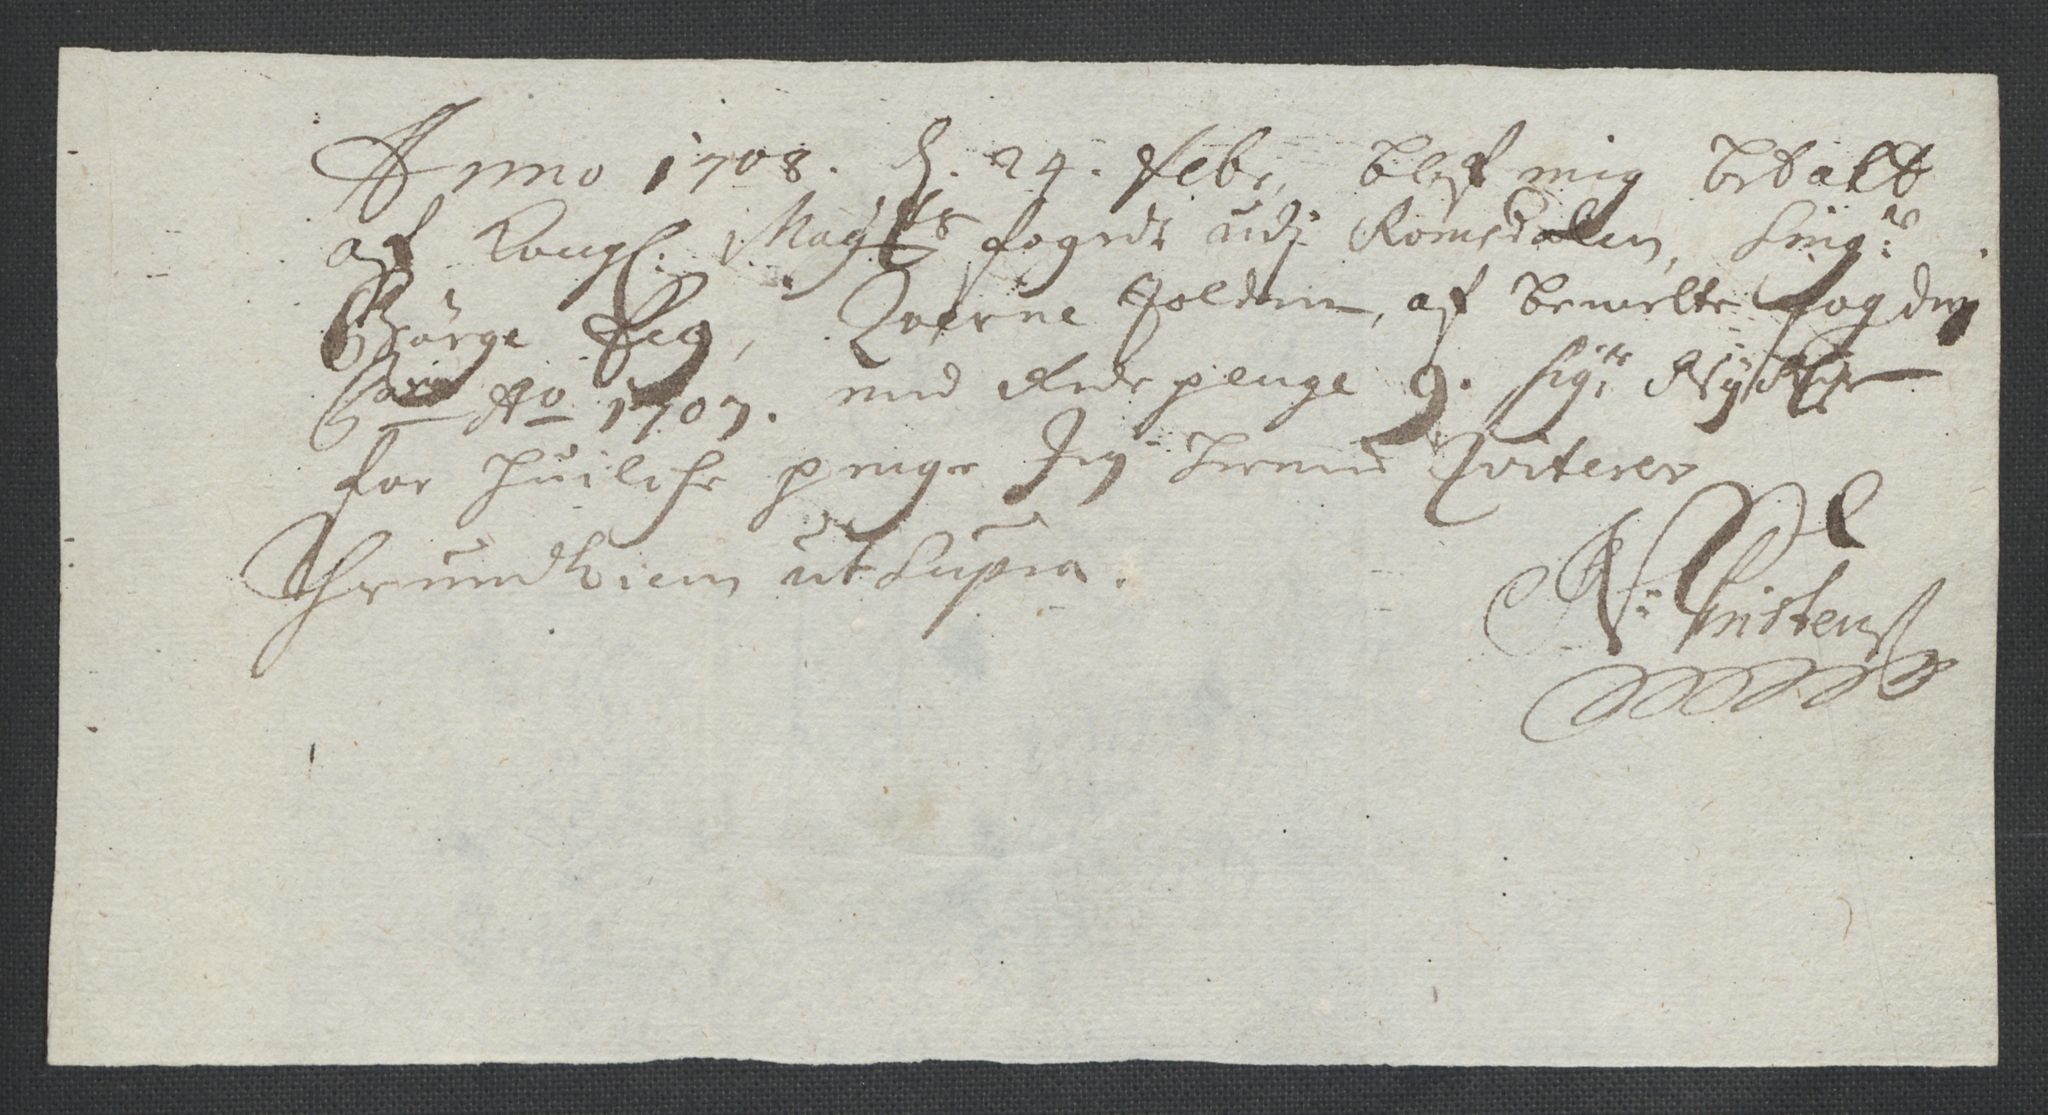 Anno 1708. d. 24. Febr. blef mig betalt
af Kongl: Maÿtts fogede udj Romsdalen, Sing:r
Børge Eeg, Qverne Tolden, af bemelte fogderj
pro Ao 1707. med Rede penge 9.
for huilche penge Jeg hermed Qviterer
Thrundhiem ut supra.
N: Christens